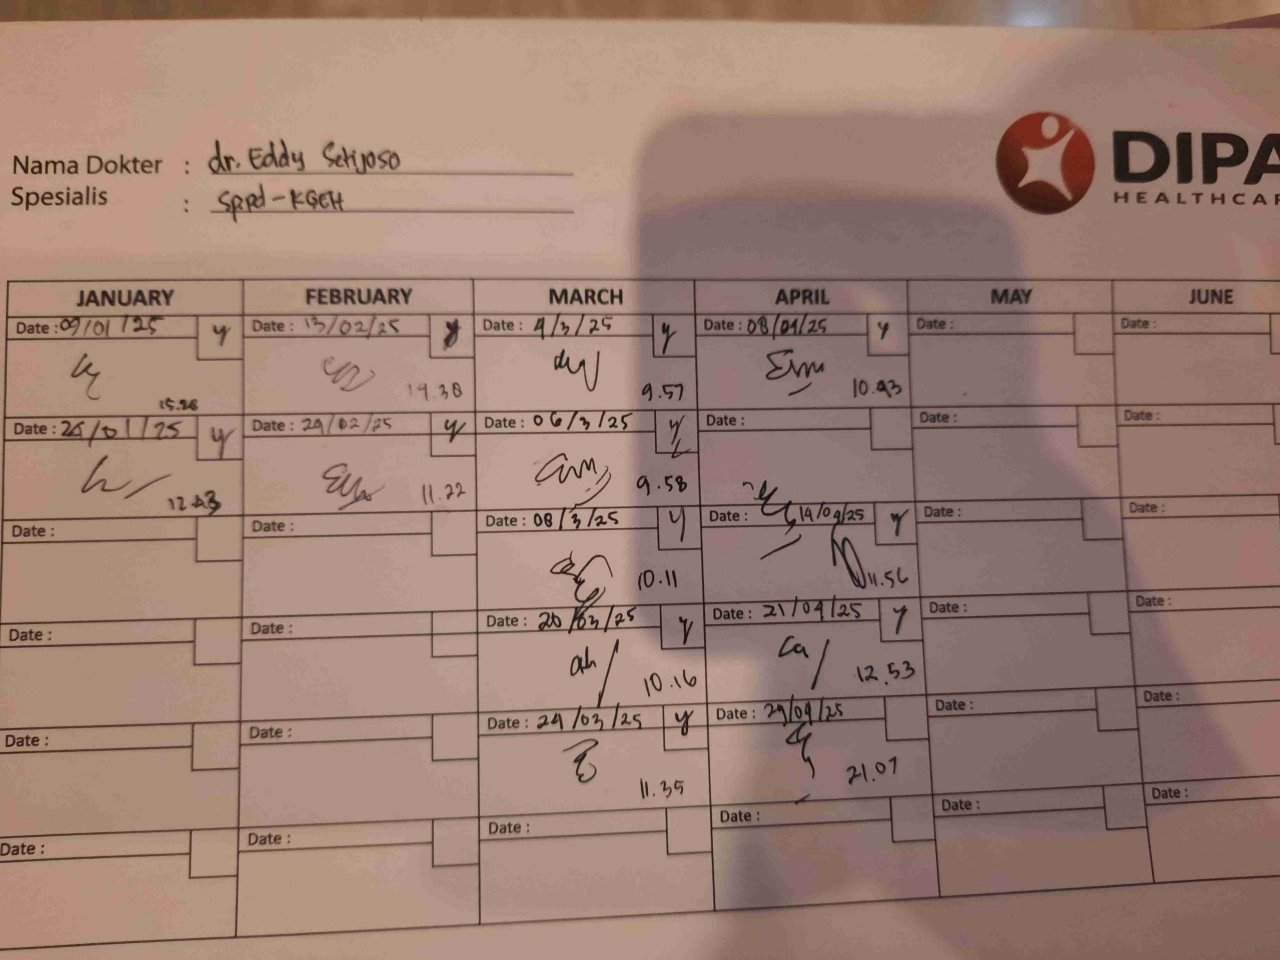 Nama Dokter : dr. Eddy Setijoso
Spesialis : SpPd-KGEH
DIPA
HEALTHCAR
JANUARY FEBRUARY MARCH APRIL MAY JUNE
Date : 09/01/25 y Date : 13/02/25 y Date : 4/3/25 y Date : 08/04/25 y Date : Date :
19.38 9.57 10.43
Date : /01/25 y Date : 24/02/25 y Date : 06/3/25 y Date : Date : Date :
12.43 11.22 9.58
Date : Date : Date : 08/3/25 y Date : 14/04/25 y Date : Date :
10.11 11.56
Date : Date : Date : 20/03/25 y Date : 21/04/25 y Date : Date :
10.16 12.53
Date : Date : Date : 24/03/25 y Date : 29/04/25 Date : Date :
11.35 21.07
Date : Date : Date : Date : Date : Date :